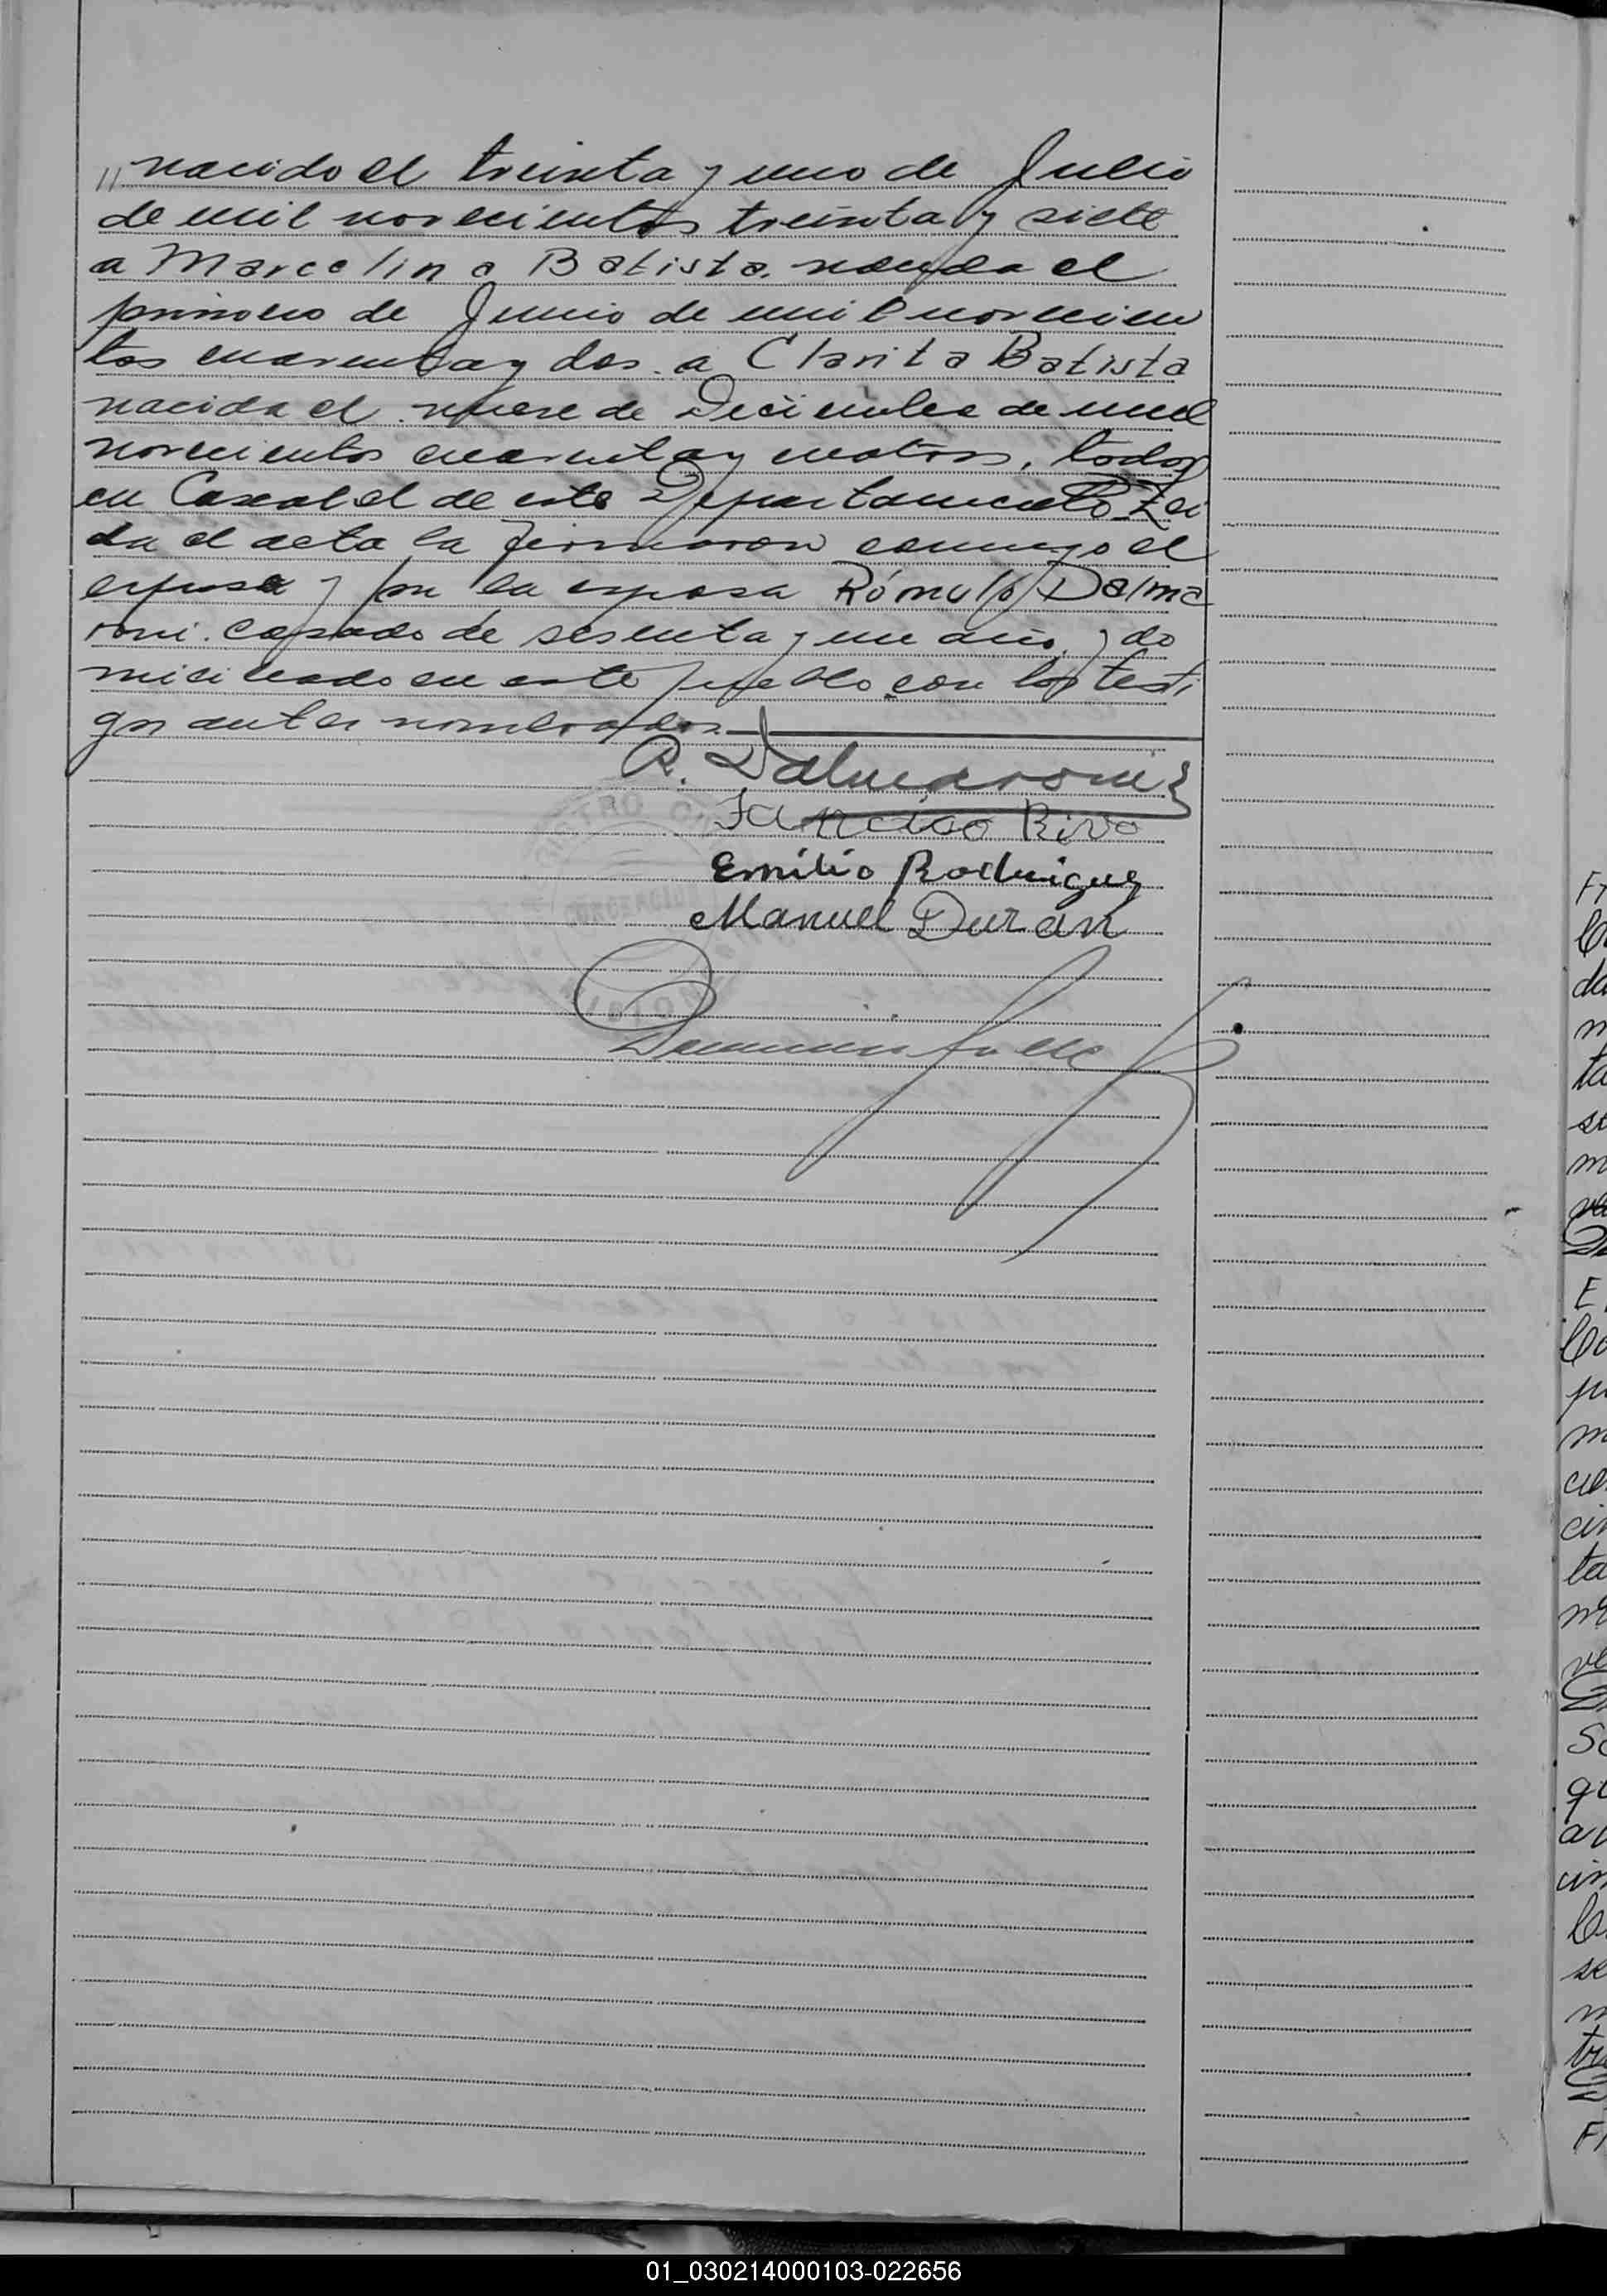 " nacido el treinta y uno de Julio
de mil novecientos treinta y siete
a Marcelina Batista. nacida el
primero de Junio de mil novecien
tos cuarenta y dos. a Clarita Batista
nacida el nueve de Diciembre de mil
novecientos cuarenta y cuatro, todos
en Carabel de este Departamento. Lei
da el acta la firmaron conmigo el
esposo y por la esposa Rómulo Dalma
roni. casado de sesenta y un año. y do
miciliado en este pueblo con los testi
gos antes nombrados.
R. Dalmaroni
Francisco Rivo
Emilio Rodriguez
Manuel Duran
01_030214000103-022656